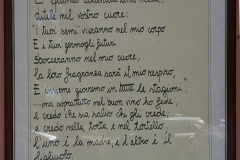 E quando addentate una mela,
ditele nel vostro cuore:
I tuoi semi vivranno nel mio corpo
E i tuoi germogli futuri
Sbocceranno nel mio cuore,
La loro fragranza sarà il mio respiro,
E insieme gioiremo in tutte le stagioni".
...ma soprattutto nel buon vino ho fede,
e credo che sia salvo chi gli crede;
e credo nella torta e nel tortello
l'uno è la madre, e l'altro è il
figliuolo.